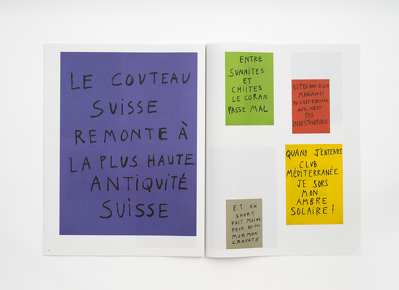 LE COUTEAU
SUISSE
REMONTE À
LA PLUS HAUTE
ANTIQUITÉ
SUISSE
ENTRE
SUNNITES
ET
CHIITES
LE CORAN
PASSE MAL
QUAND J'ENTENDS
CLUB
MÉDITERRANÉE
JE SORS
MON
AMBRE
SOLAIRE !
E.T. EN
SHORT
FAIT MOINS
PEUR QU'UN
MORMON
CRAVATÉ